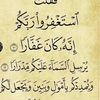 فقلت
استغفروا ربكم
إنه كان غفارا
يرسل السماء عليكم مدرارا
ويمددكم بأموال وبنين ويجعل لكم